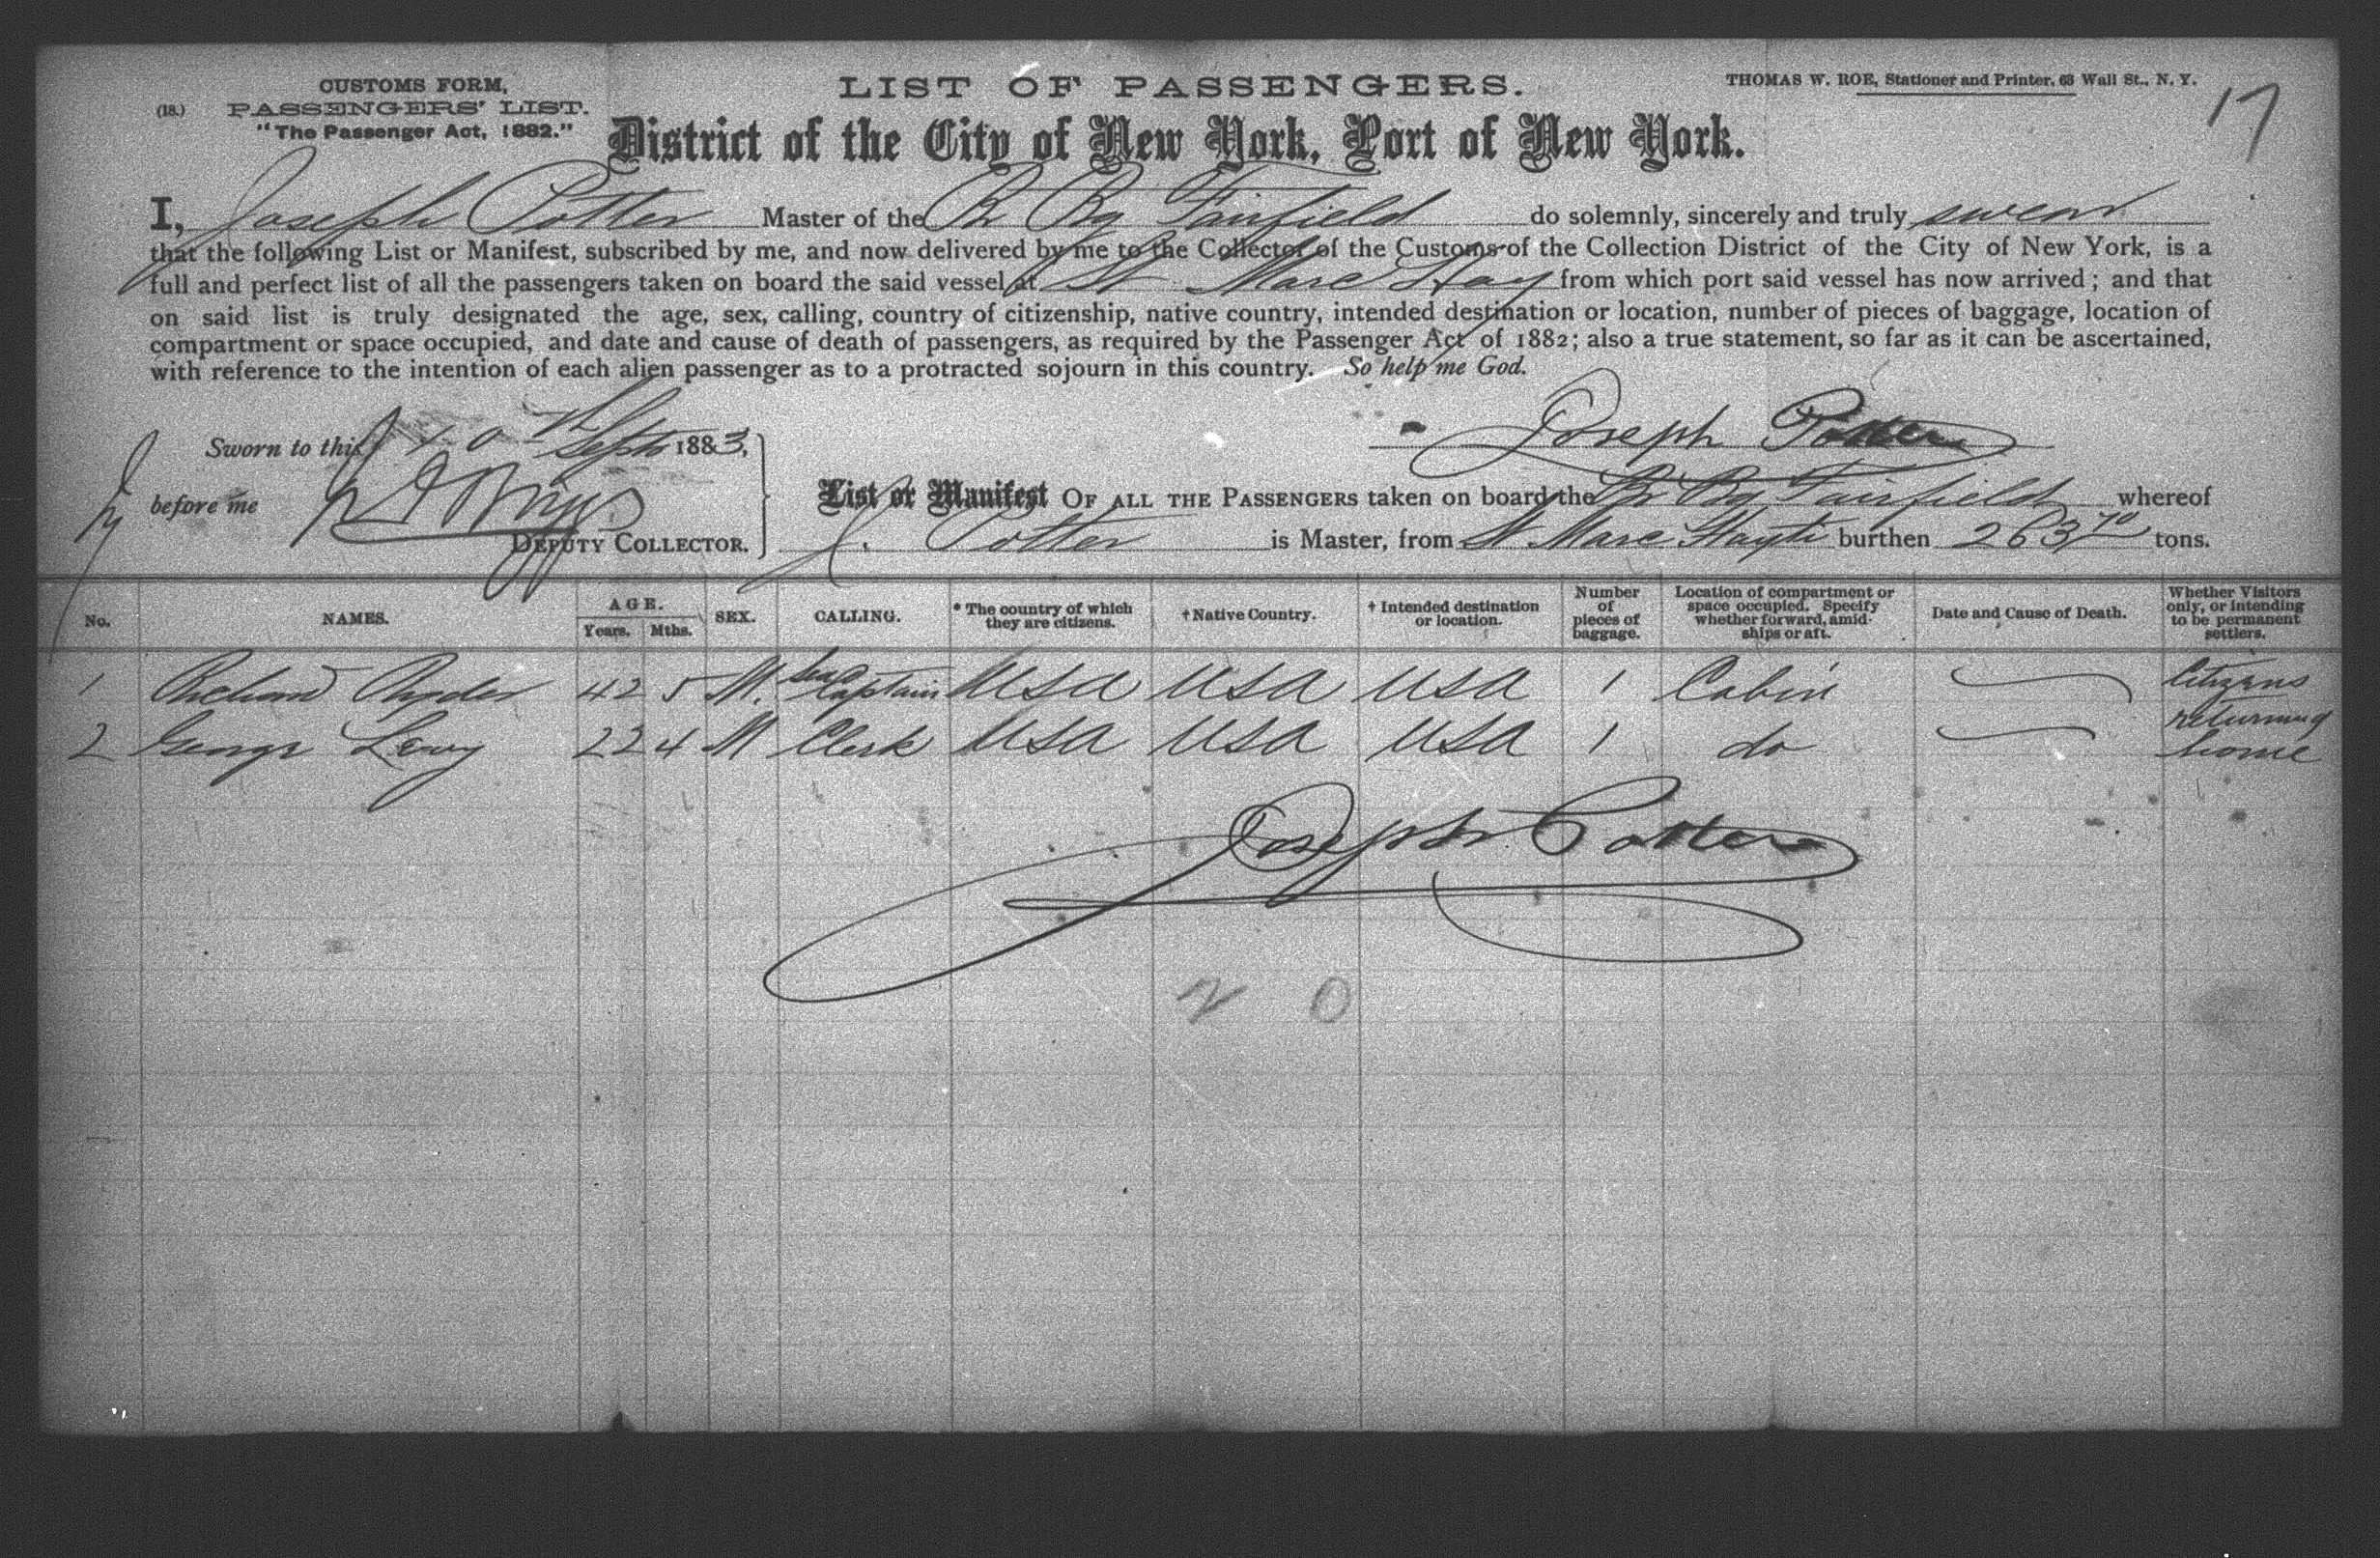 CUSTOMS FORM,
(18.) PASSENGERS' LIST.
"The Passenger Act, 1882."
LIST OF PASSENGERS.
THOMAS W. ROE, Stationer and Printer, 63 Wall St., N. Y.
17
District of the City of New York, Port of New York.
I, Joseph Potter Master of the Br Bg Fairfield do solemnly, sincerely and truly swear
that the following List or Manifest, subscribed by me, and now delivered by me to the Collector of the Customs of the Collection District of the City of New York, is a
full and perfect list of all the passengers taken on board the said vessel at St Marc Hay from which port said vessel has now arrived; and that
on said list is truly designated the age, sex, calling, country of citizenship, native country, intended destination or location, number of pieces of baggage, location of
compartment or space occupied, and date and cause of death of passengers, as required by the Passenger Act of 1882; also a true statement, so far as it can be ascertained,
with reference to the intention of each alien passenger as to a protracted sojourn in this country. So help me God.
Sworn to this 10th Sept 1883,
Joseph Potter
before me
DEPUTY COLLECTOR.
List or Manifest OF ALL THE PASSENGERS taken on board the Br Bg Fairfield whereof
J. Potter is Master, from St Marc Hayti burthen 263 70 tons.
No. NAMES. AGE. Years. Mths. SEX. CALLING. * The country of which they are citizens. † Native Country. † Intended destination or location. Number of pieces of baggage. Location of compartment or space occupied. Specify whether forward, amid-ships or aft. Date and Cause of Death. Whether Visitors only, or intending to be permanent settlers.
1 Richard Ryder 42 5 M. Sea Captain USA USA USA 1 Cabin Citizens
2 George Levy 22 4 M Clerk USA USA USA 1 do returning home
Joseph Potter
2 0